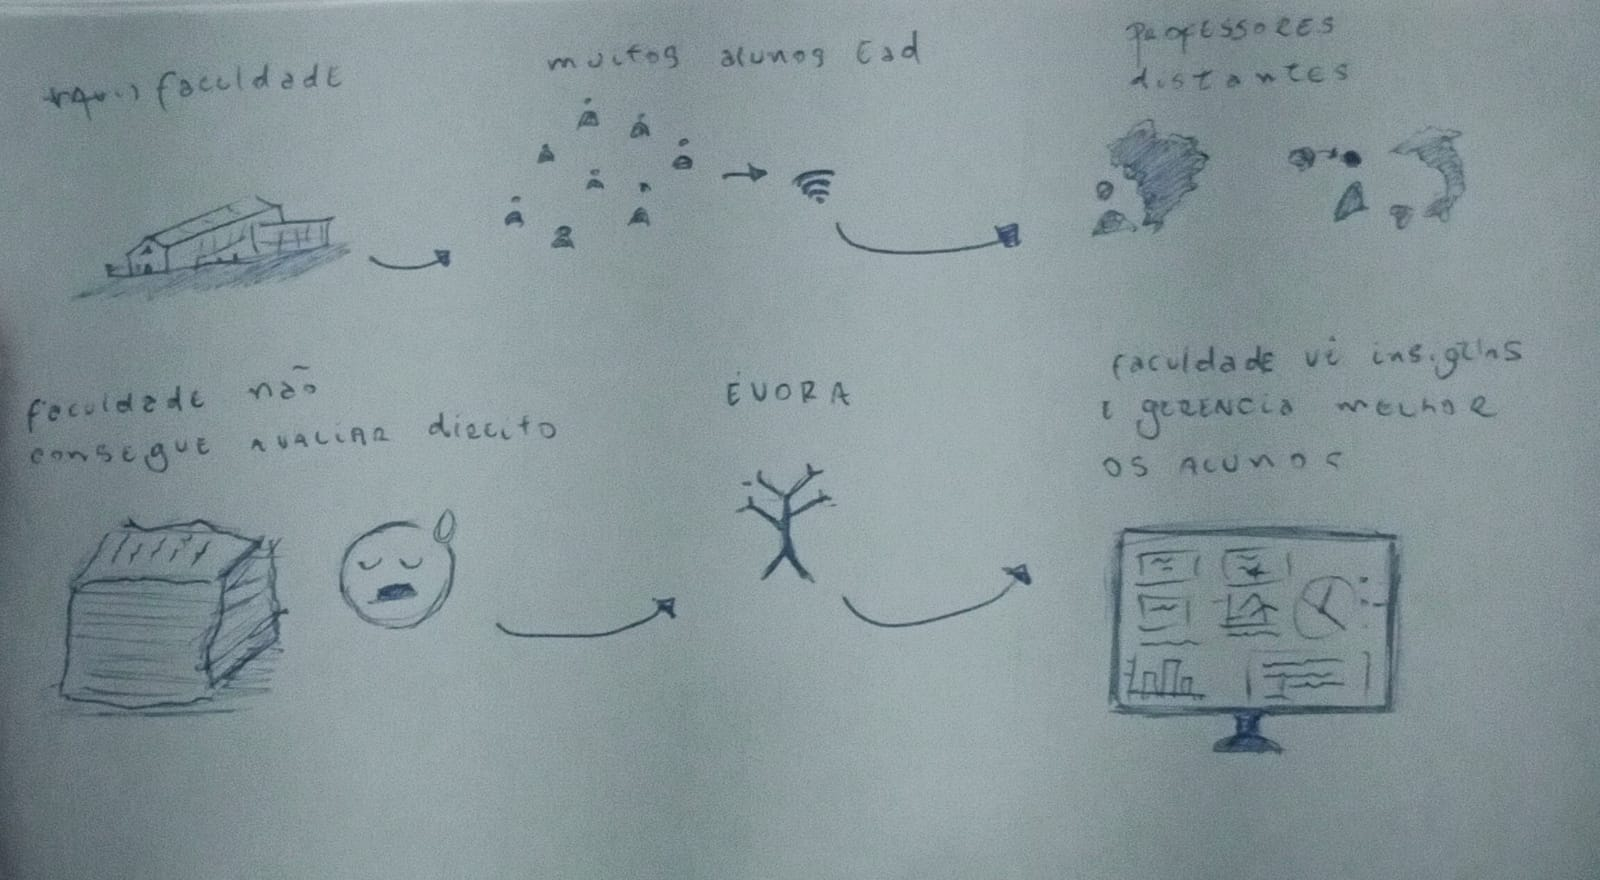 faculdade
muitos alunos Ead
PROFESSORES
distantes
faculdade não
consegue AVALIAR direito
ÉVORA
faculdade vê insights
E gERENCIA MELHOR
OS ALUNOS